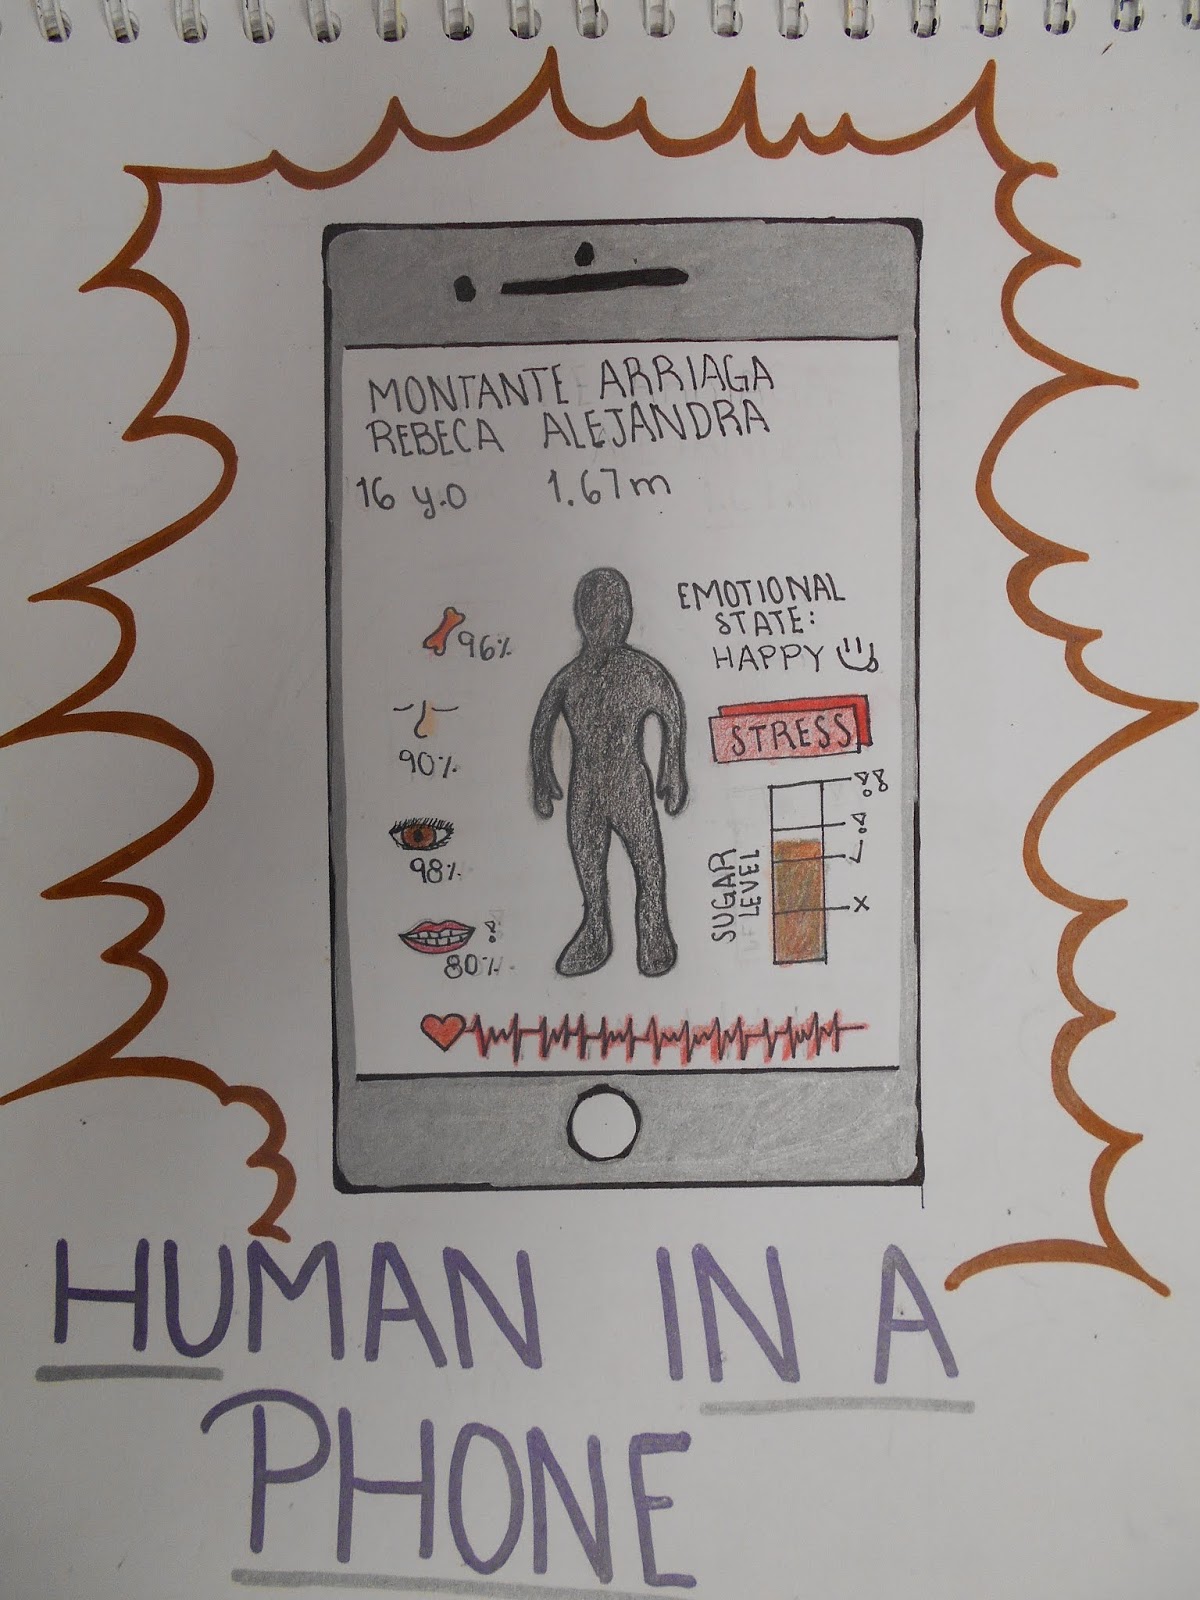 MONTANTE ARRIAGA
REBECA ALEJANDRA
16 y.o 1.67m
EMOTIONAL
STATE:
HAPPY
96%
STRESS
90%
98%
SUGAR
LEVEL
80%
HUMAN IN A
PHONE